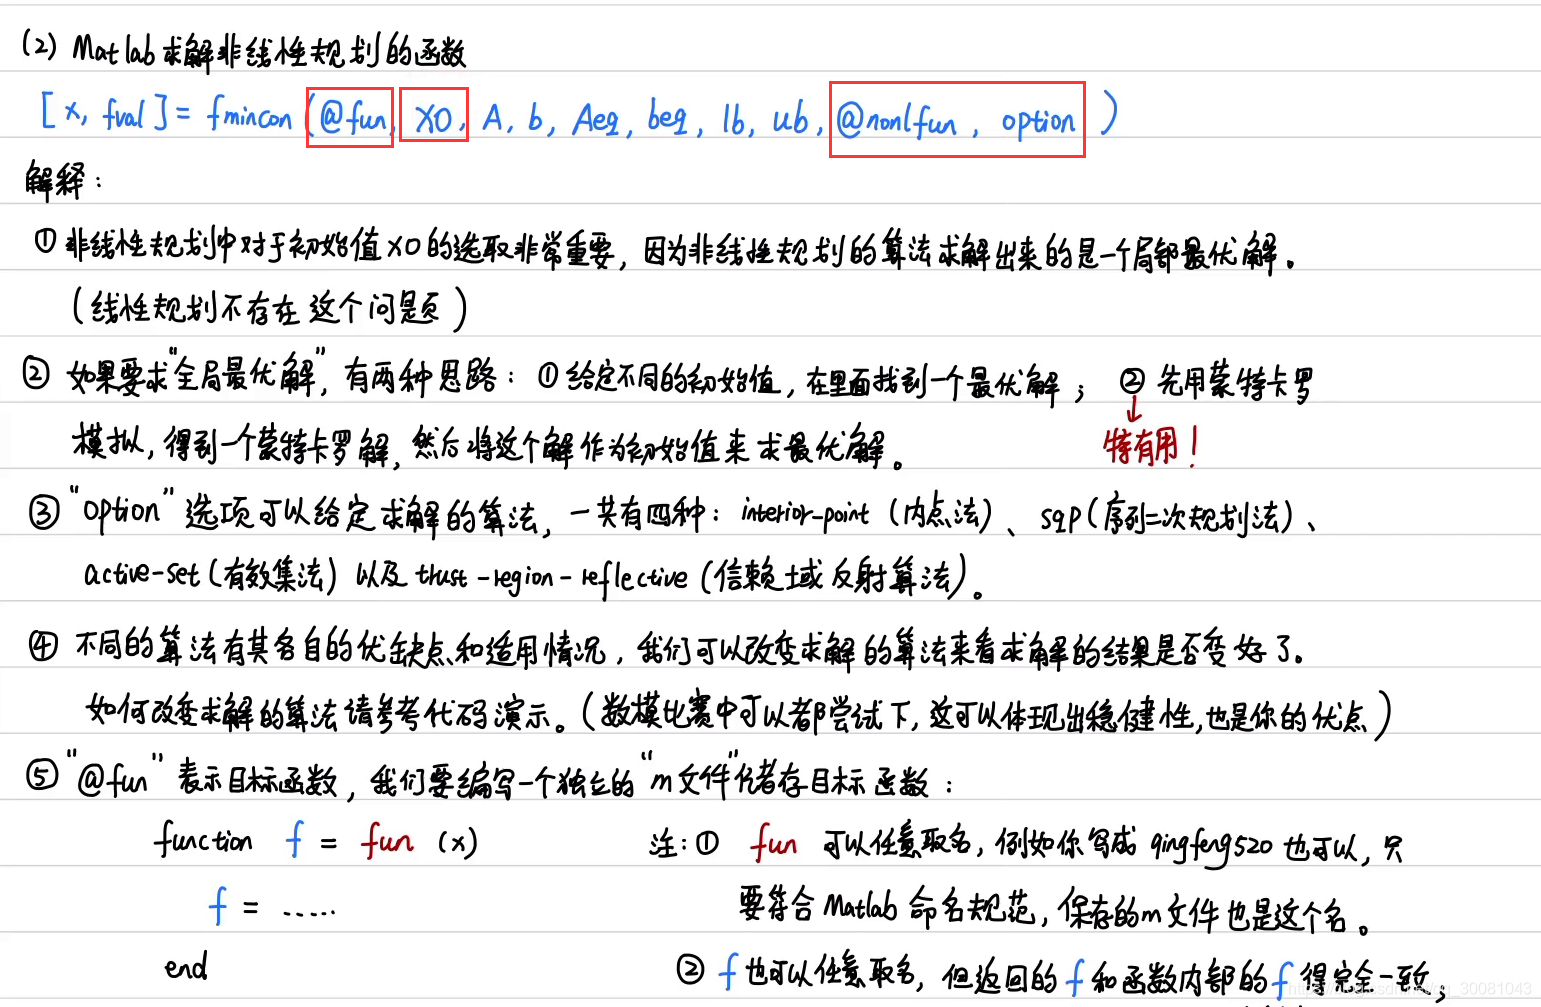 (2) Matlab求解非线性规划的函数
[x, fval] = fmincon (@fun, X0, A, b, Aeq, beq, lb, ub, @nonlfun, option)
解释：
① 非线性规划中对于初始值X0的选取非常重要，因为非线性规划的算法求解出来的是一个局部最优解。
（线性规划不存在这个问题）
② 如果要求“全局最优解”，有两种思路：①给定不同的初始值，在里面找到一个最优解；②先用蒙特卡罗
模拟，得到一个蒙特卡罗解，然后将这个解作为初始值来求最优解。
↓特有用！
③ “option”选项可以给定求解的算法，一共有四种：interior-point（内点法）、sqp（序列二次规划法）、
active-set（有效集法）以及trust-region-reflective（信赖域反射算法）。
④ 不同的算法有其各自的优缺点和适用情况，我们可以改变求解的算法来看求解的结果是否变好了。
如何改变求解的算法请参考代码演示。（数模比赛中可以都尝试下，这可以体现出稳健性，也是你的优点）
⑤ “@fun”表示目标函数，我们要编写一个独立的“m文件”储存目标函数：
function f = fun (x)
f = ......
end
注：① fun 可以任意取名，例如你写成qingfeng520也可以，只
要符合Matlab命名规范，保存的m文件也是这个名。
② f也可以任意取名，但返回的f和函数内部的f得完全一致，